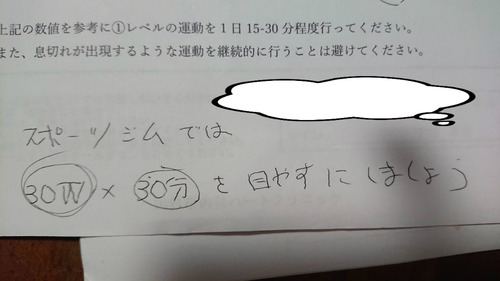 上記の数値を参考に①レベルの運動を1日15-30分程度行ってください。
また、息切れが出現するような運動を継続的に行うことは避けてください。
スポーツジムでは
30W×30分を目やすにしましょう